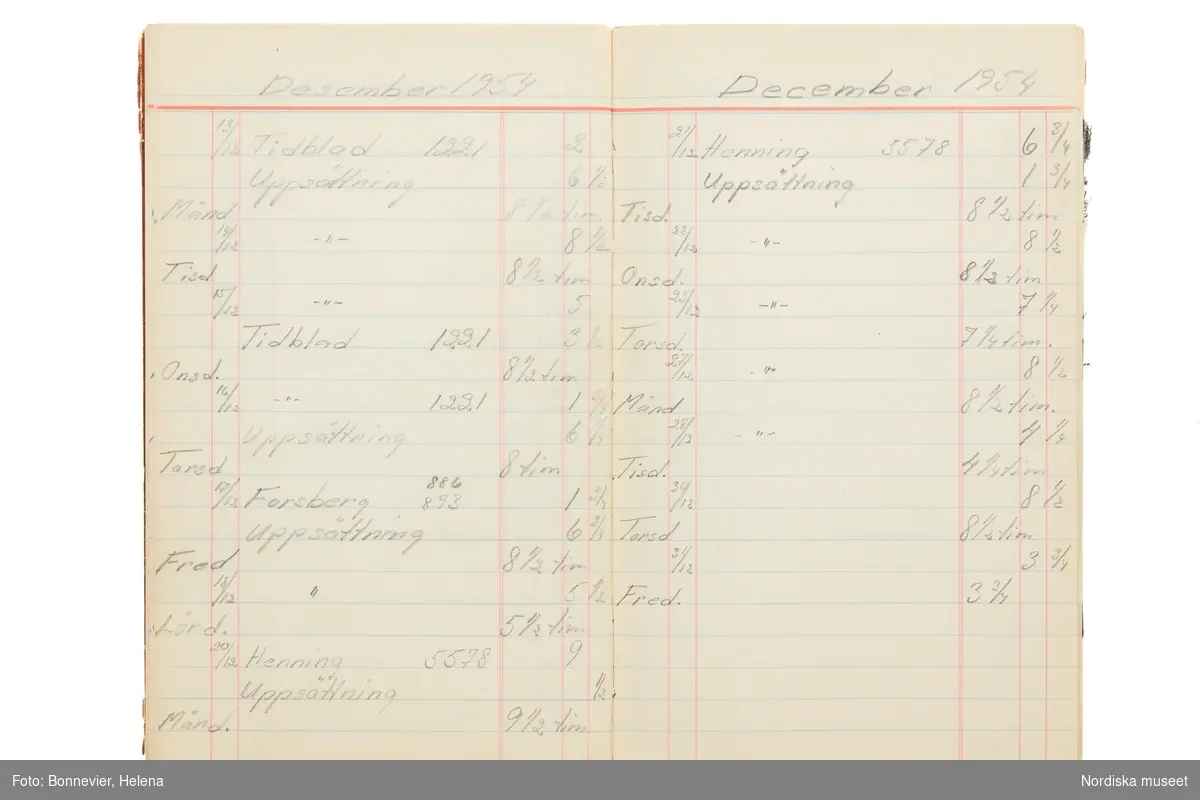 Desember 1954
13/12 Tidblad 1221 2
Uppsättning 6 1/2
Månd 8 1/2 tim.
14/12 -"- 8 1/2
Tisd. 8 1/2 tim
15/12 -"- 5
Tidblad 1221 3 1/2
Onsd. 8 1/2 tim
16/12 -"- 1221 1 3/4
Uppsättning 6 1/4
Torsd 8 tim
886
17/12 Forsberg 893 1 3/4
Uppsättning 6 3/4
Fred 8 1/2 tim
18/12 " 5 1/2
Lörd. 5 1/2 tim.
20/12 Henning 5578 9
Uppsättning 1/2
Månd. 9 1/2 tim
December 1954
21/12 Henning 5578 6 3/4
Uppsättning 1 3/4
Tisd. 8 1/2 tim
22/12 -"- 8 1/2
Onsd. 8 1/2 tim
23/12 -"- 7 1/4
Torsd. 7 1/4 tim.
27/12 -"- 8 1/2
Månd 8 1/2 tim.
28/12 -"- 4 1/4
Tisd. 4 1/4 tim
30/12 8 1/2
Torsd 8 1/2 tim
31/12 3 3/4
Fred. 3 3/4
Foto: Bonnevier, Helena
Nordiska museet